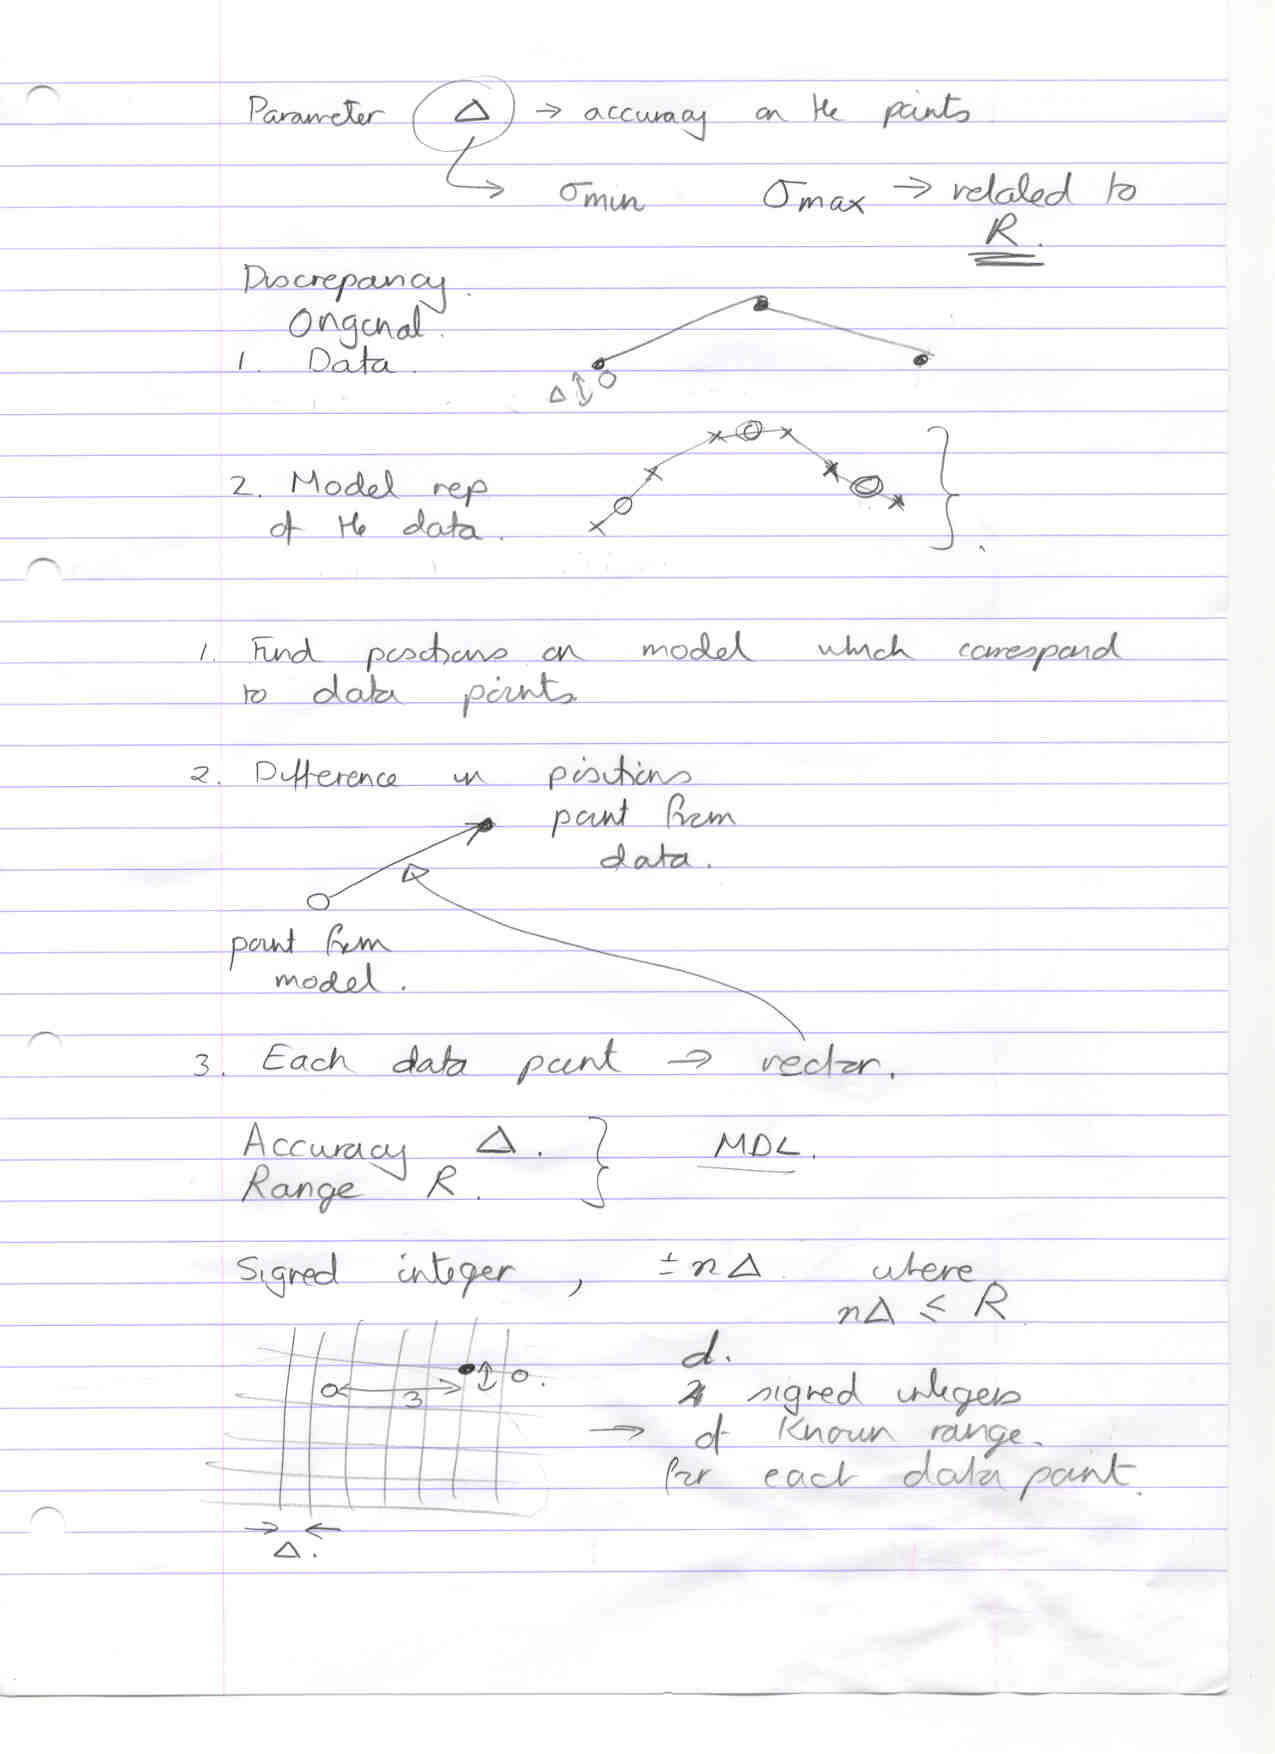 Parameter Δ → accuracy on the points
σmin σmax → related to
R.
Discrepancy.
Original.
1. Data.
Δ
2. Model rep
of the data.
1. Find positions on model which correspond
to data points
2. Difference in positions
point from
data.
point from
model.
3. Each data point → vector.
Accuracy Δ.
Range R.
MDL.
Signed integer, ±nΔ where
nΔ ≤ R
d.
signed integers
3
0.
→ of known range.
for each data point.
Δ.